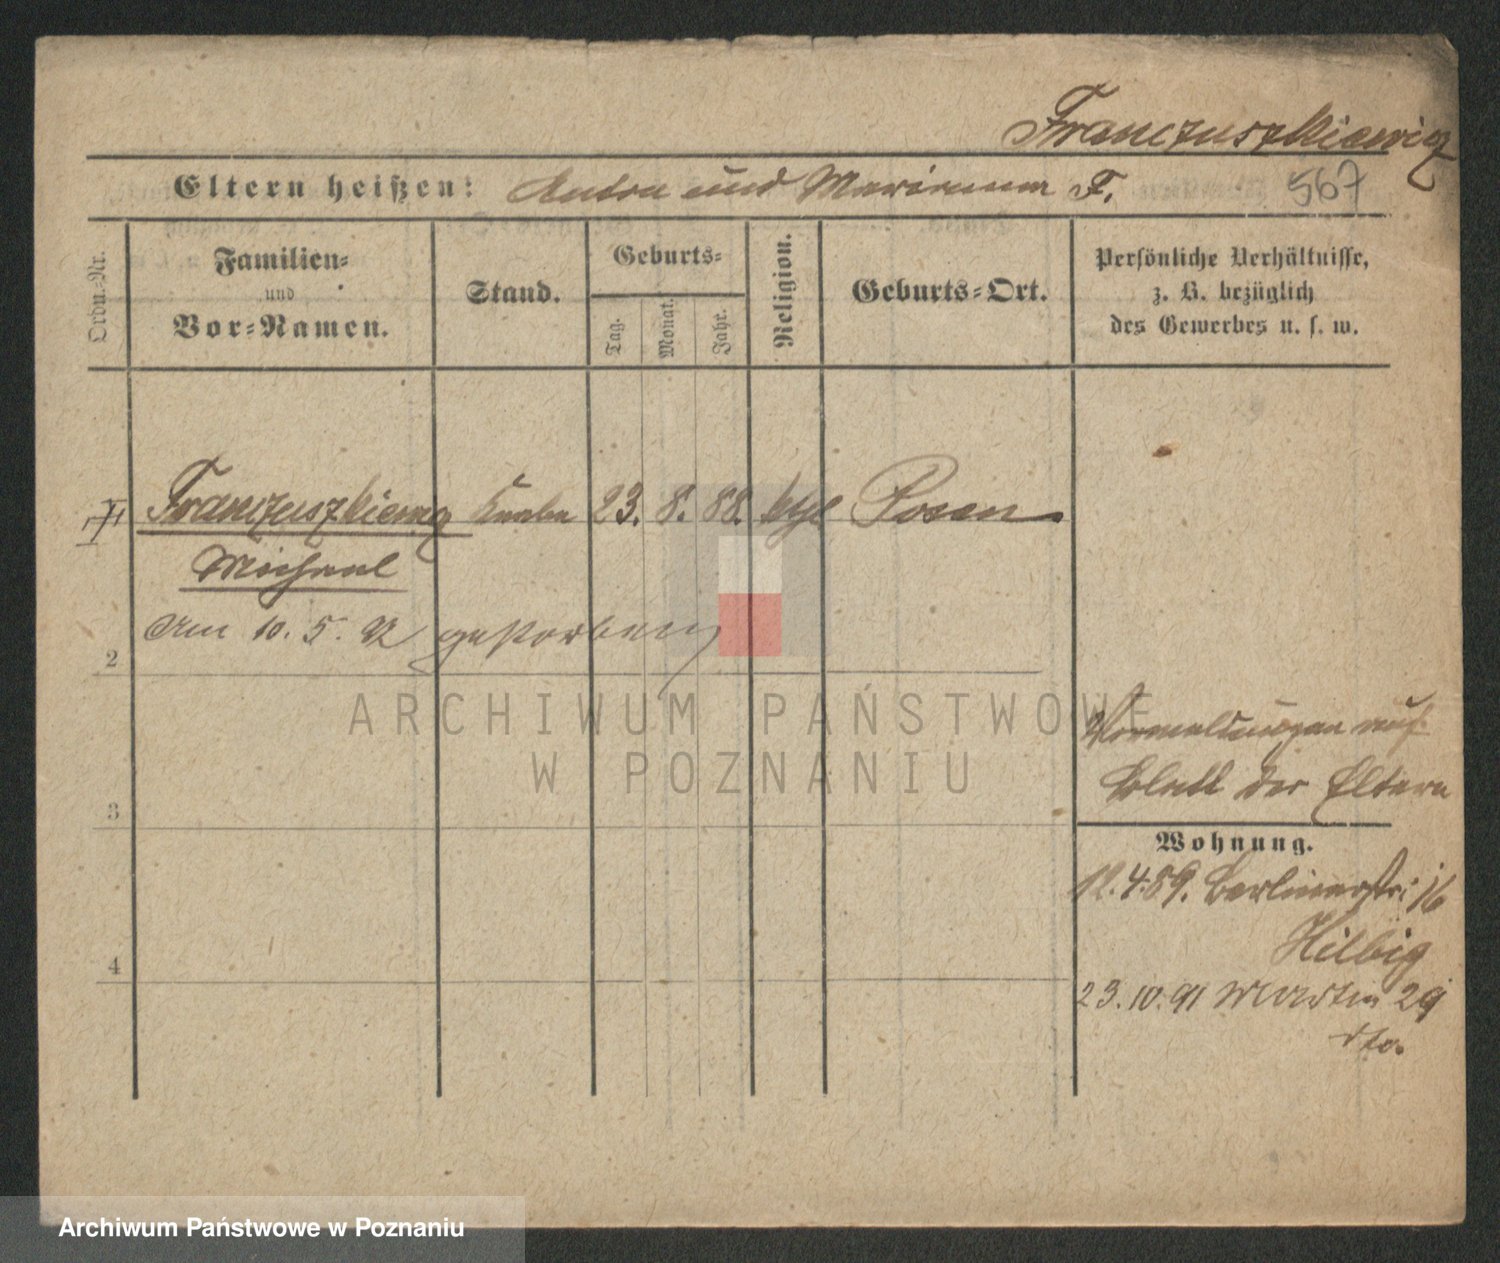 Franczuszkiewicz
Eltern heißen: Anton und Marianna F.
567
Ordn.-Nr.
Familien-
und
Vor-Namen.
Stand.
Geburts-
Tag.
Monat.
Jahr.
Religion.
Geburts-Ort.
Persönliche Verhältnisse,
z. B. bezüglich
des Gewerbes u. s. w.
Franczuszkiewicz Knabe 23. 8. 88. kth Posen
Michael
Am 10. 5. 92 gestorben
2
ARCHIWUM PAŃSTWOWE
W POZNANIU
Vormeldungen auf
Blatt der Eltern
3
Wohnung.
12.4.89. Berlinerstr. 16
Hilbig
4
23.10.91 Martin 29
dto.
Archiwum Państwowe w Poznaniu